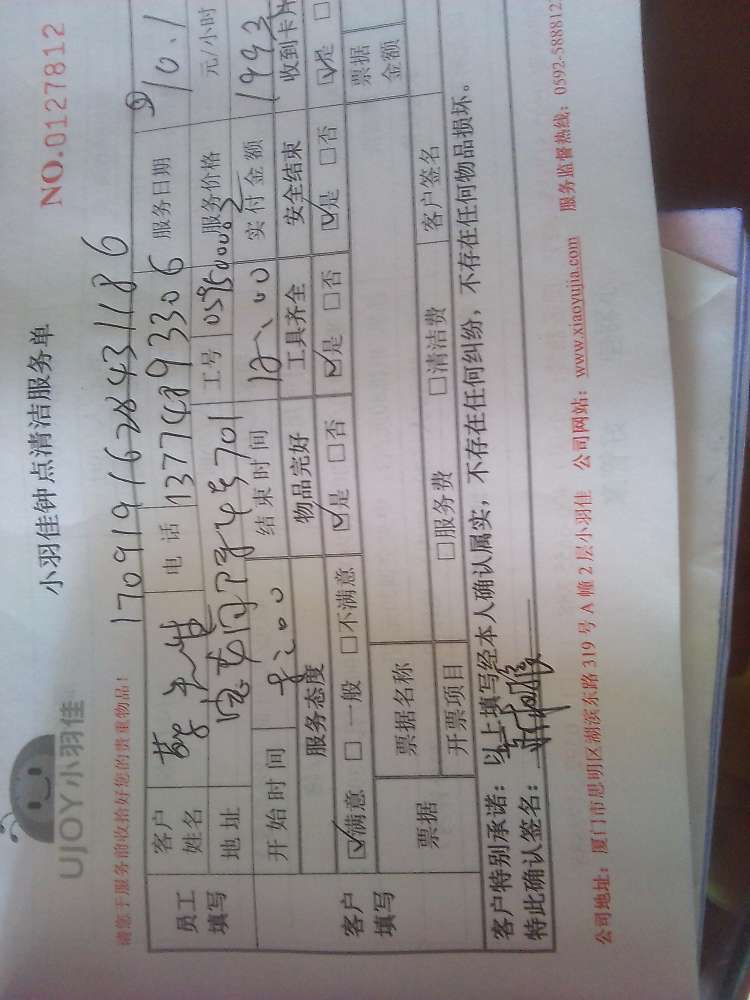 UJOY小羽佳
小羽佳钟点清洁服务单
NO.0127812
请您于服务前收拾好您的贵重物品!
17091916284431186
员工填写
客户姓名 先生 电话 13774893306 服务日期 10.1
地址 701 工号 服务价格 元/小时
开始时间 8:00 结束时间 12:00 实付金额 199
客户填写
服务态度 物品完好 工具齐全 安全结束 收到卡片
☑满意 □一般 □不满意 ☑是 □否 ☑是 □否 ☑是 □否 ☑是 □
票据 票据名称 票据金额
开票项目 □服务费 □清洁费 客户签名
客户特别承诺: 以上填写经本人确认属实,不存在任何纠纷,不存在任何物品损坏。
特此确认签名:
公司地址: 厦门市思明区湖滨东路319号A幢2层小羽佳 公司网站: www.xiaoyujia.com 服务监督热线: 0592-588812